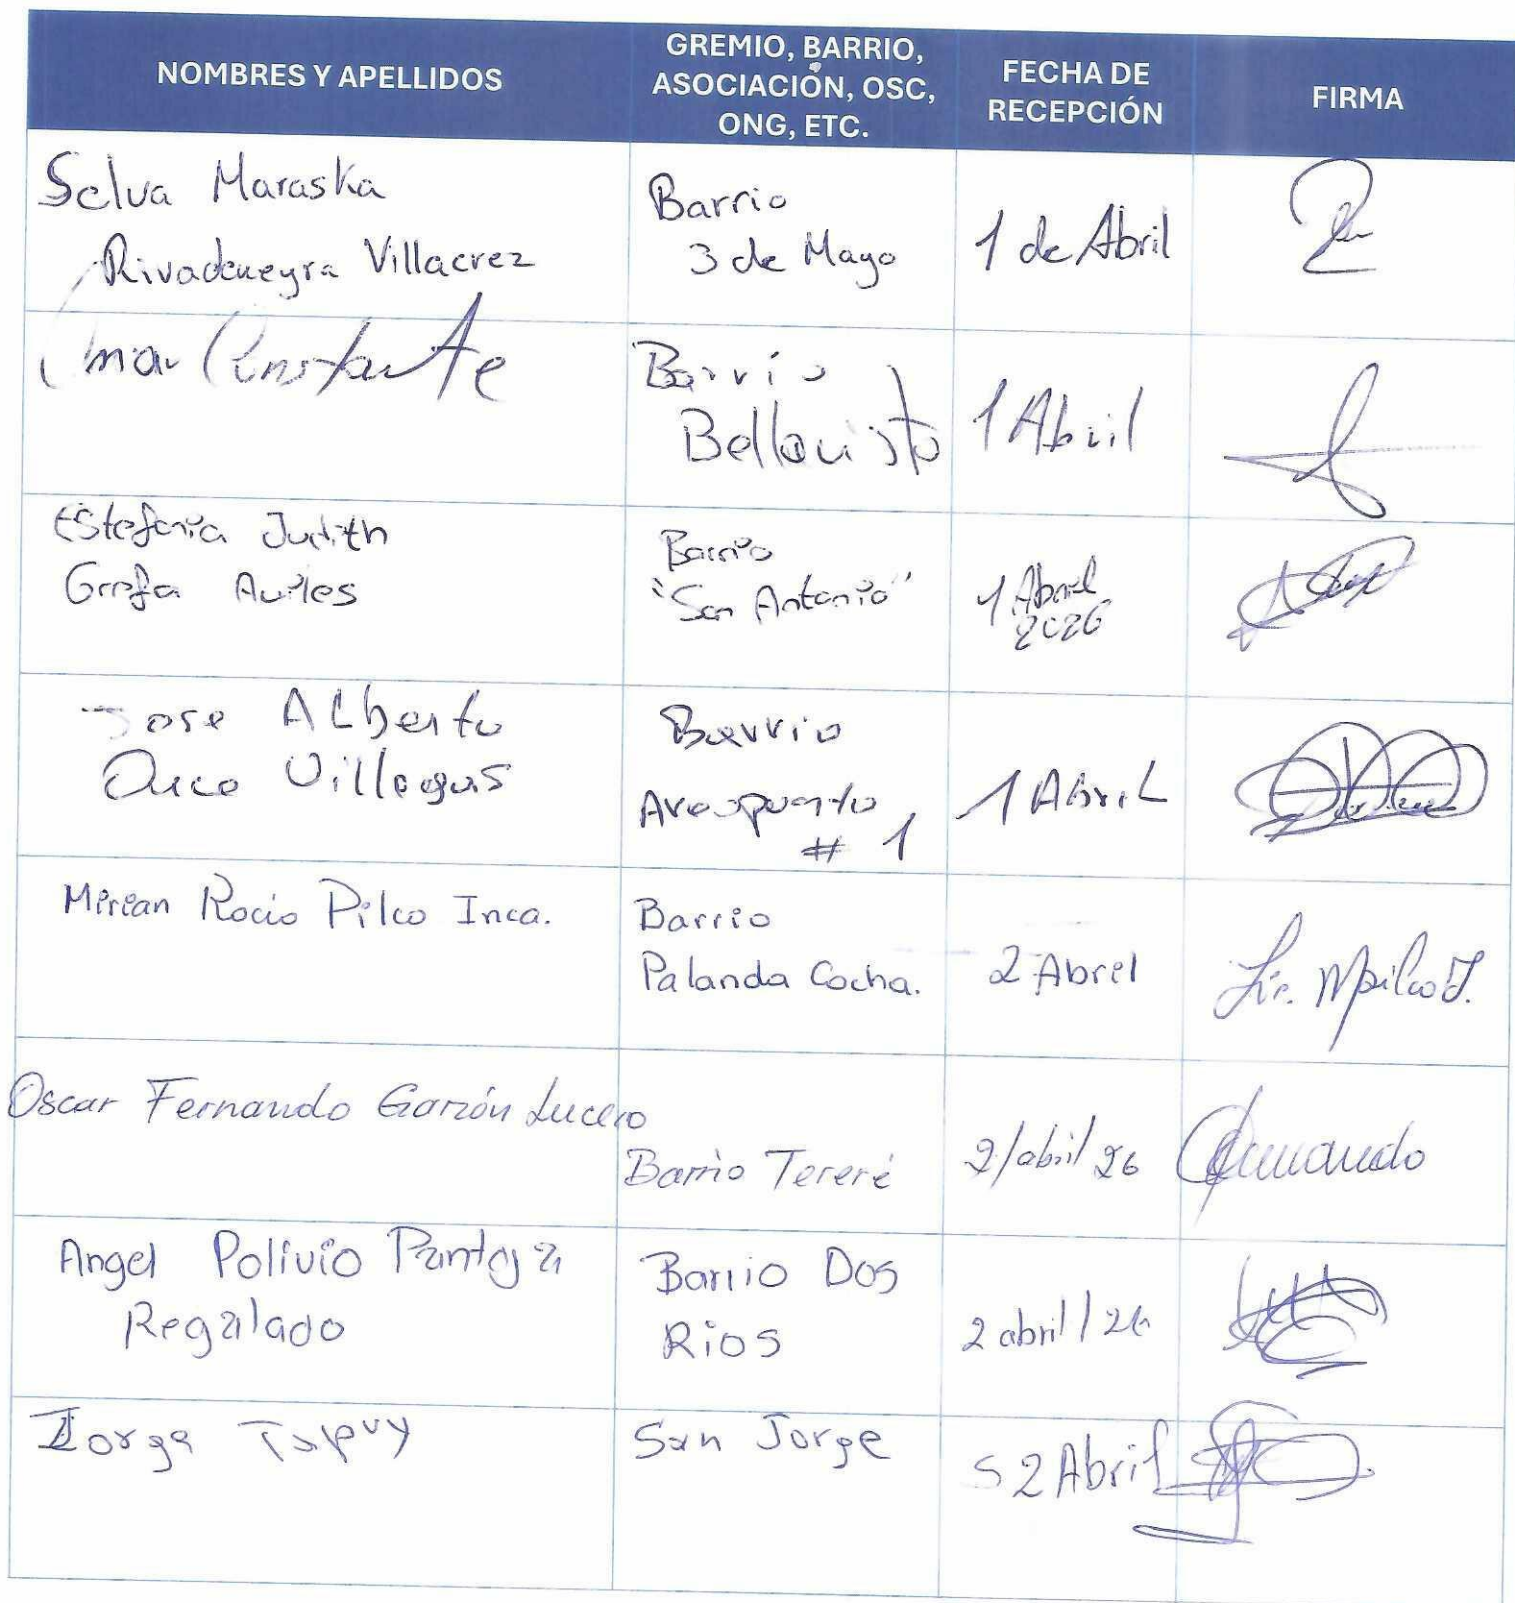 NOMBRES Y APELLIDOS
GREMIO, BARRIO,
ASOCIACIÓN, OSC,
ONG, ETC.
FECHA DE
RECEPCIÓN
FIRMA
Selva Maraska
Rivadeneyra Villacrez
Barrio
3 de Mayo
1 de Abril
Omar Constante
Barrio
Bellavista
1 Abril
Estefania Judith
Grefa Aviles
Barrio
"San Antonio"
1 Abril
2026
Jose Alberto
Villegas
Barrio
Areopuerto
# 1
1 Abril
Mirian Rocio Pilco Inca.
Barrio
Palanda Cocha.
2 Abril
Lic. MPilcoI.
Oscar Fernando Garzón Lucero
Barrio Tereré
2/abril/26
Angel Polivio Pantoja
Regalado
Barrio Dos
Rios
2 abril/26
Jorge Tapuy
San Jorge
2 Abril